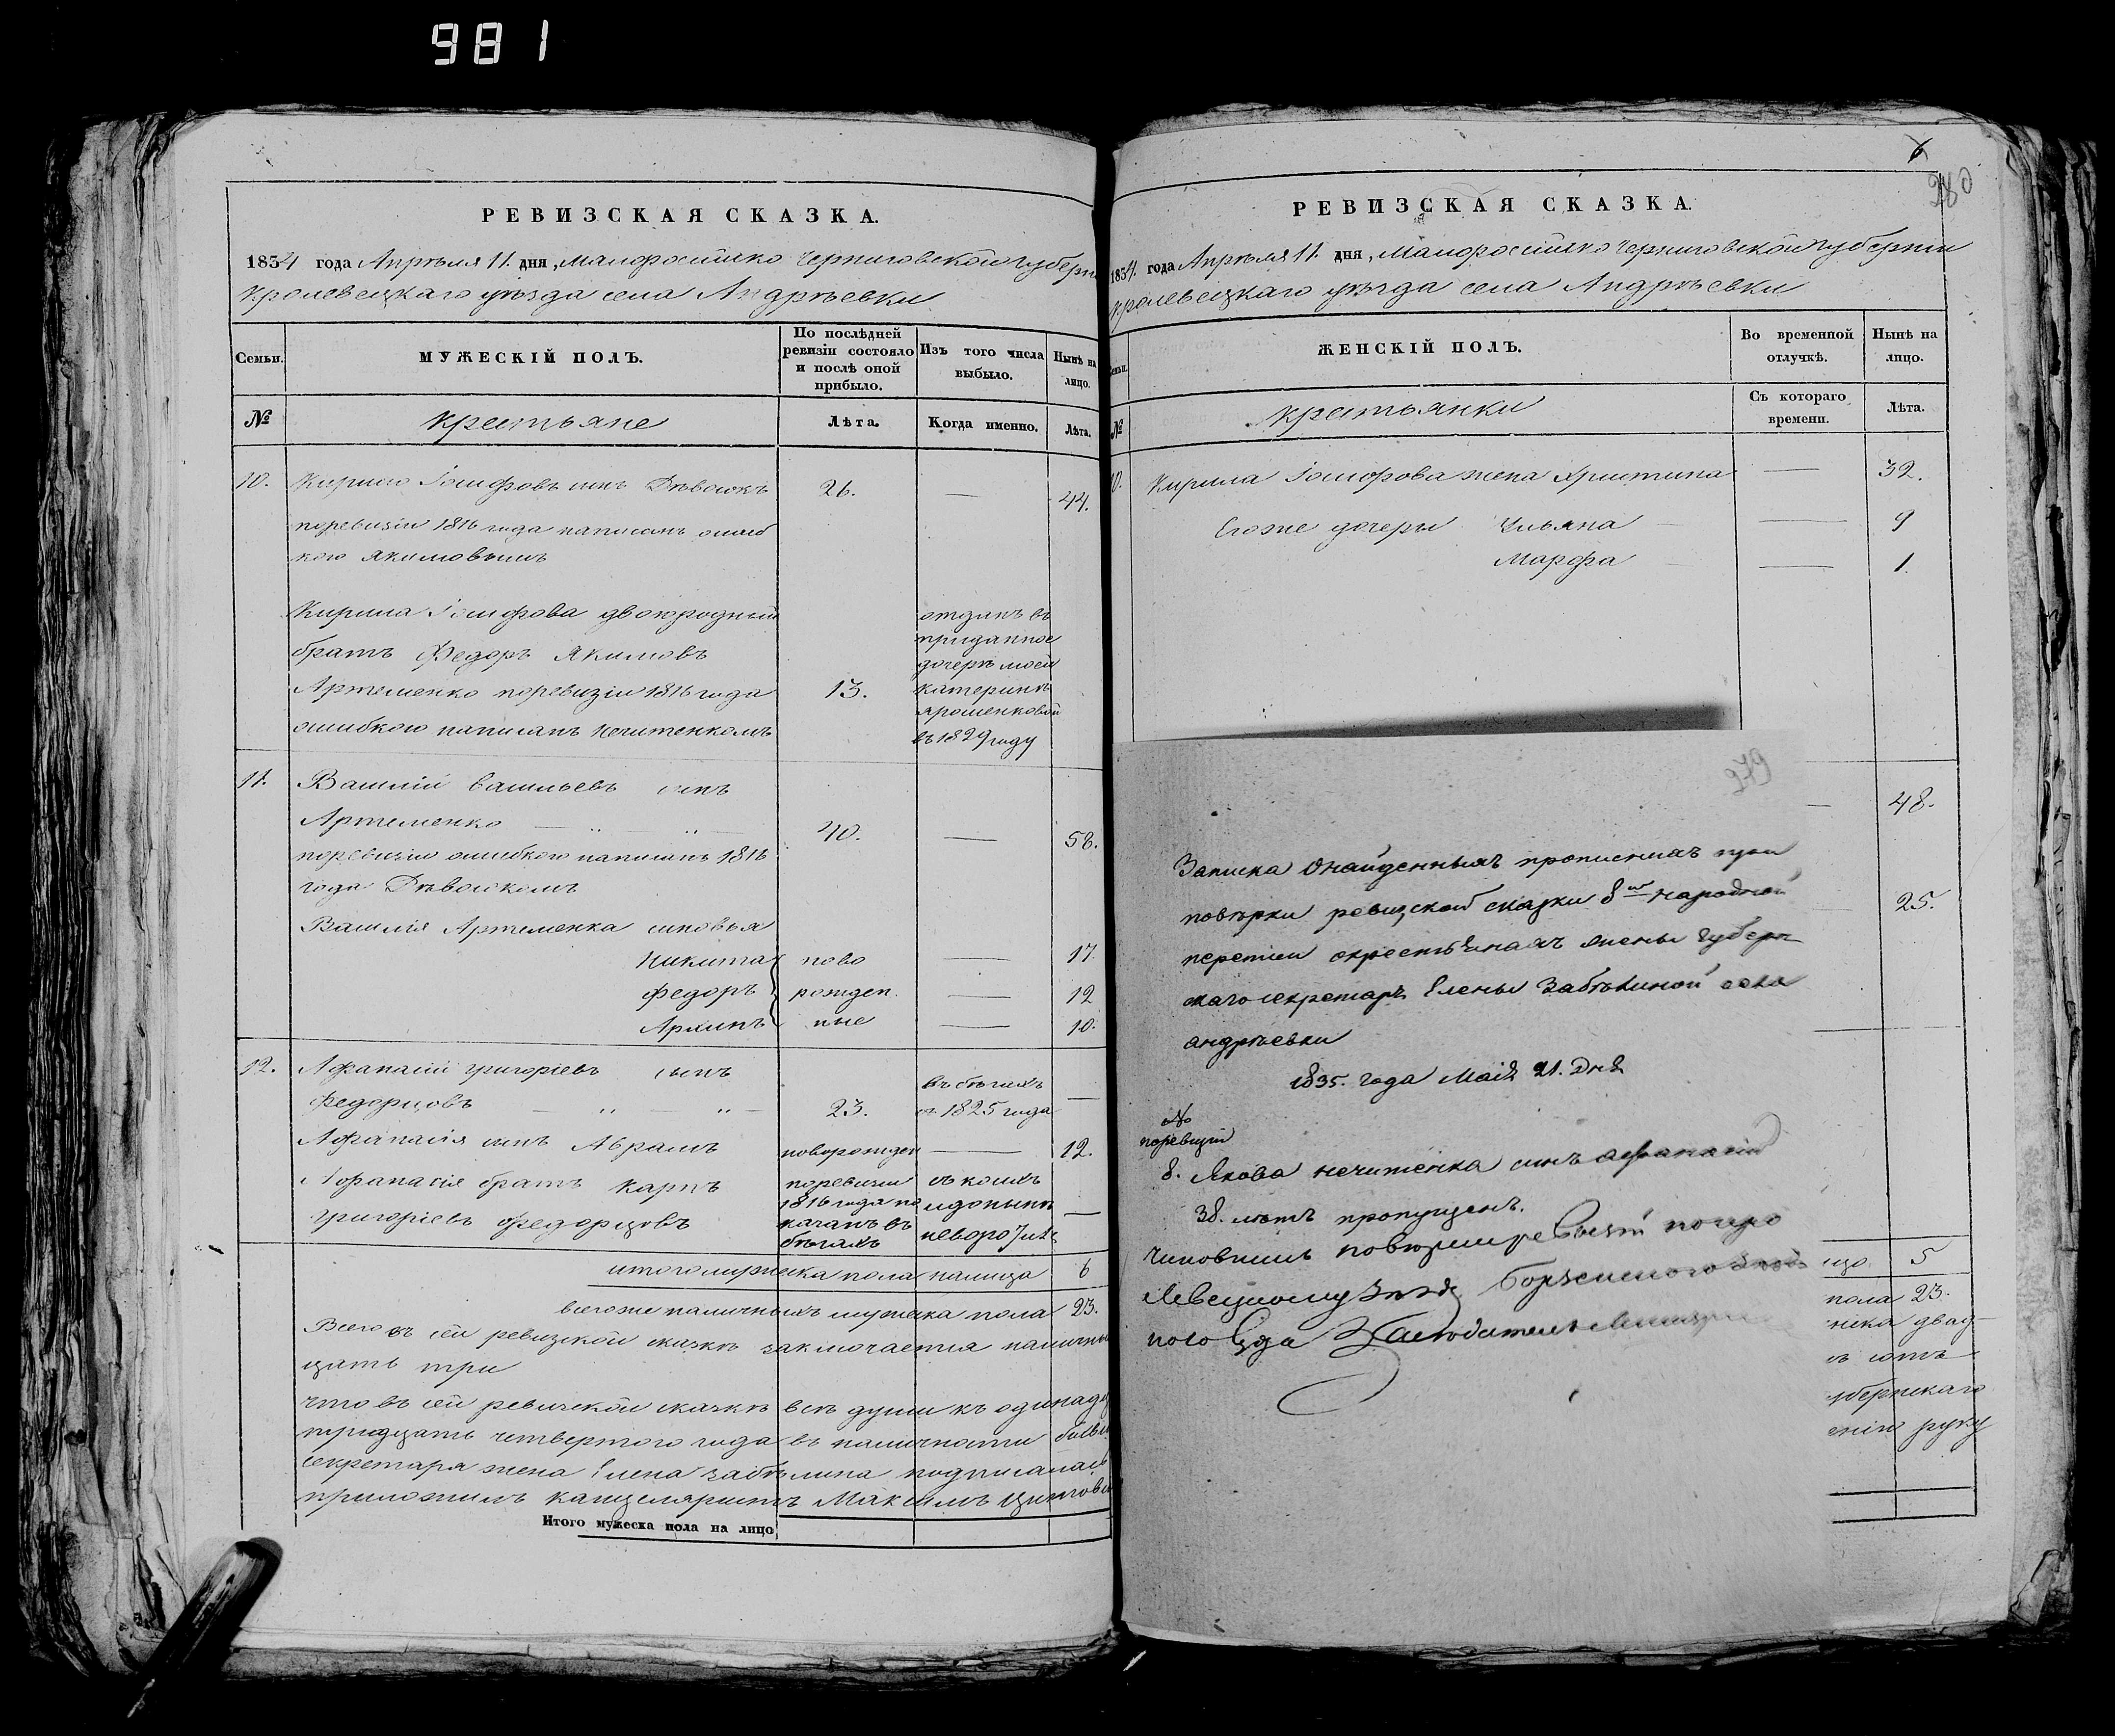 981
РЕВИЗСКАЯ СКАЗКА.
1834 года Апрѣля 11. дня, Малоросійско Черниговской Губерн
Кролевецкаго уѣзда села Андрѣевки
Семьи.
МУЖЕСКІЙ ПОЛЪ.
По послѣдней ревизіи состояло и послѣ оной прибыло.
Изъ того числа выбыло.
Нынѣ на лицо.
№
крестьяне
Лѣта.
Когда именно.
Лѣта.
10. Кирило Іосифовъ сынъ Дѣвоюкъ 26. — 44.
поревизіи 1816 года написанъ ошиб
кою Якимовымъ
Кирила Іосифова двоюродный
братъ Федоръ Якимовъ
Артеменко поревизіи 1816 года 13.
ошибкою написанъ Нечитенкомъ
отданъ въ
приданное
дочерѣ моей
Катеринѣ
Ярошенковой
въ 1829 году
11. Василій Васильевъ сынъ
Артеменко — „ — „ — 40. — 58.
поревизіи ошибкою написанъ 1816
года Дѣвоюкомъ
Василія Артеменка сыновья
Никита ново — 17.
Федоръ рожден — 12
Архипъ ные — 10.
12. Афанасій Григоріевъ сынъ
Федорцовъ — „ — „ — 23. въ бѣгахъ съ 1825 года —
Афанасія сынъ Абрамъ новорожден — 12.
Афанасія братъ Карпъ
Григоріевъ Федорцовъ
поревизіи
1816 года по
казанъ въ
бѣгахъ
въ коихъ
идонынѣ
—
итого мужеска пола налицо 6
всегоже наличныхъ мужеска пола 23.
Всего въ сей ревизской сказкѣ заключается налични
цать три
Что въ сей ревизской сказкѣ всѣ души къ одинадц
тридцать четвертого года въ наличности
секретаря жена Елена Забѣлина подписалась
приложилъ канцеляристъ Максимъ
Итого мужеска пола на лицо
6
280
РЕВИЗСКАЯ СКАЗКА.
1834. года Апрѣля 11. дня, Малоросійско Черниговской Губерніи
Кролевецкаго уѣзда села Андрѣевки
ЖЕНСКІЙ ПОЛЪ.
Во временной отлучкѣ.
Нынѣ на лицо.
№
крестьянки
Съ котораго времени.
Лѣта.
Кирила Іосифова жена Христина — 32.
Егоже дочеры Ульяна — 9
Марфа — 1.
279
— 48.
25.
Записка онайденныхъ прописнихъ при
повѣрки ревизской сказки 8й народной
переписи окрестьянахъ жены Губерн
скаго секретаря Елены Забѣлиной села
Андрѣевки
1835. года Маія 21. Дня
№
поревизіи
8. Якова Нечитенка сынъ Афанасій
38. лѣтъ пропущенъ.
Чиновникъ повѣрки ревизіи по Кро
левецкому Уѣзду
цо. 5
пола 23.
нска двад
убернскаго
енію руку